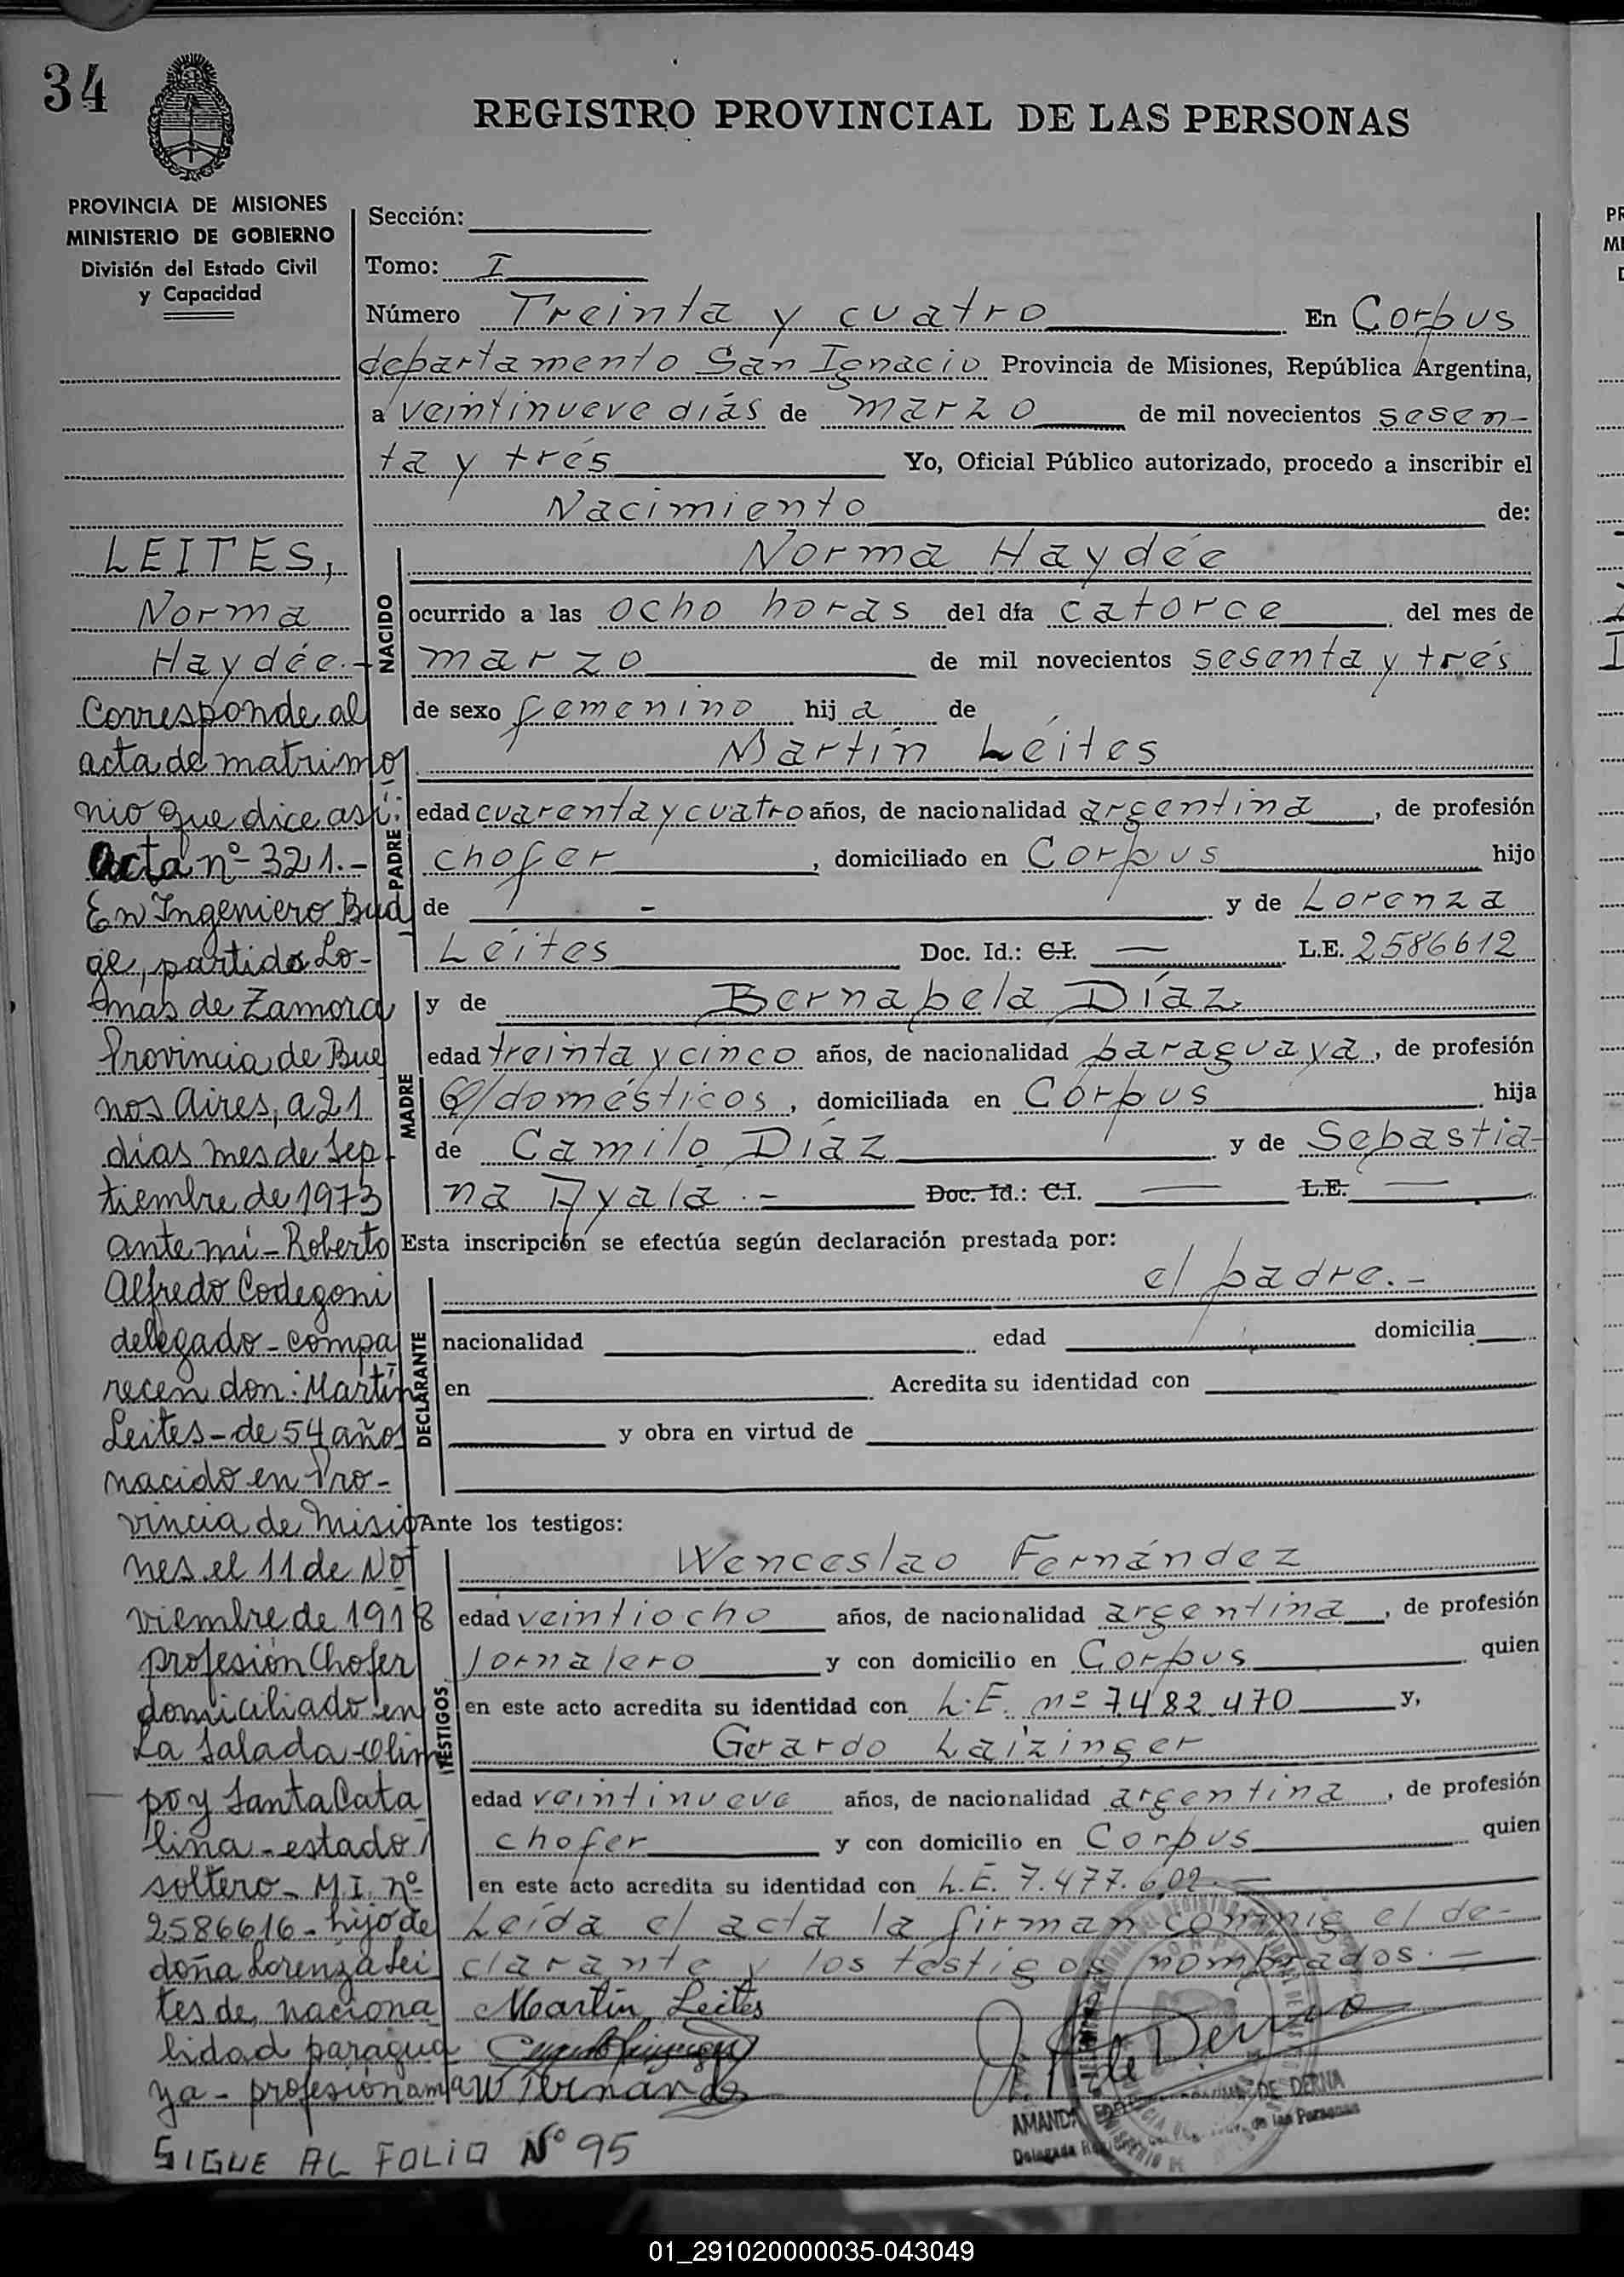 34
REGISTRO PROVINCIAL DE LAS PERSONAS
PROVINCIA DE MISIONES
MINISTERIO DE GOBIERNO
División del Estado Civil
y Capacidad
LEITES,
Norma
Haydée.-
Corresponde al
acta de matrimo
nio que dice así:
Acta nº 321.-
En Ingeniero Bud
ge, partido Lo-
mas de Zamora
Provincia de Bue
nos Aires, a 21
días mes de Sep-
tiembre de 1973
ante mí - Roberto
Alfredo Codegoni
delegado - compa
recen don: Martín
Leites - de 54 años
nacido en Pro-
vincia de Misio
nes el 11 de No
viembre de 1918
profesión Chofer
domiciliado en
La Salada - Olim
po y Santa Cata
lina - estado
soltero - M I. nº
2586616 - hijo de
doña Lorenza Lei
tes de naciona
lidad paragua
ya - profesión ama
SIGUE AL FOLIO Nº 95
Sección:
Tomo: I
Número Treinta y cuatro En Corpus
departamento San Ignacio Provincia de Misiones, República Argentina,
a veintinueve días de marzo de mil novecientos sesen-
ta y tres Yo, Oficial Público autorizado, procedo a inscribir el
Nacimiento de:
NACIDO
Norma Haydée
ocurrido a las ocho horas del día catorce del mes de
marzo de mil novecientos sesenta y tres
de sexo femenino hija de
PADRE
Martín Leites
edad cuarenta y cuatro años, de nacionalidad argentina, de profesión
chofer, domiciliado en Corpus hijo
de - y de Lorenza
Leites Doc. Id.: C.I. — L.E. 2586612
MADRE
y de Bernabela Díaz
edad treinta y cinco años, de nacionalidad paraguaya, de profesión
Q/domésticos, domiciliada en Corpus hija
de Camilo Díaz y de Sebastia-
na Ayala.- Doc. Id.: C.I. — L.E. —
Esta inscripción se efectúa según declaración prestada por:
DECLARANTE
el padre.-
nacionalidad edad domicilia
en Acredita su identidad con
y obra en virtud de
Ante los testigos:
TESTIGOS
Wenceslao Fernández
edad veintiocho años, de nacionalidad argentina, de profesión
Jornalero y con domicilio en Corpus quien
en este acto acredita su identidad con L.E. nº 7.482.470 y,
Gerardo Laizinger
edad veintinueve años, de nacionalidad argentina, de profesión
chofer y con domicilio en Corpus quien
en este acto acredita su identidad con L.E. 7.477.602.-
Leída el acta la firman conmig el de-
clarante y los testigos nombrados.-
Martín Leites
W Fernández
AMANDA DE DERNA
Delegada de las Personas
01_291020000035-043049